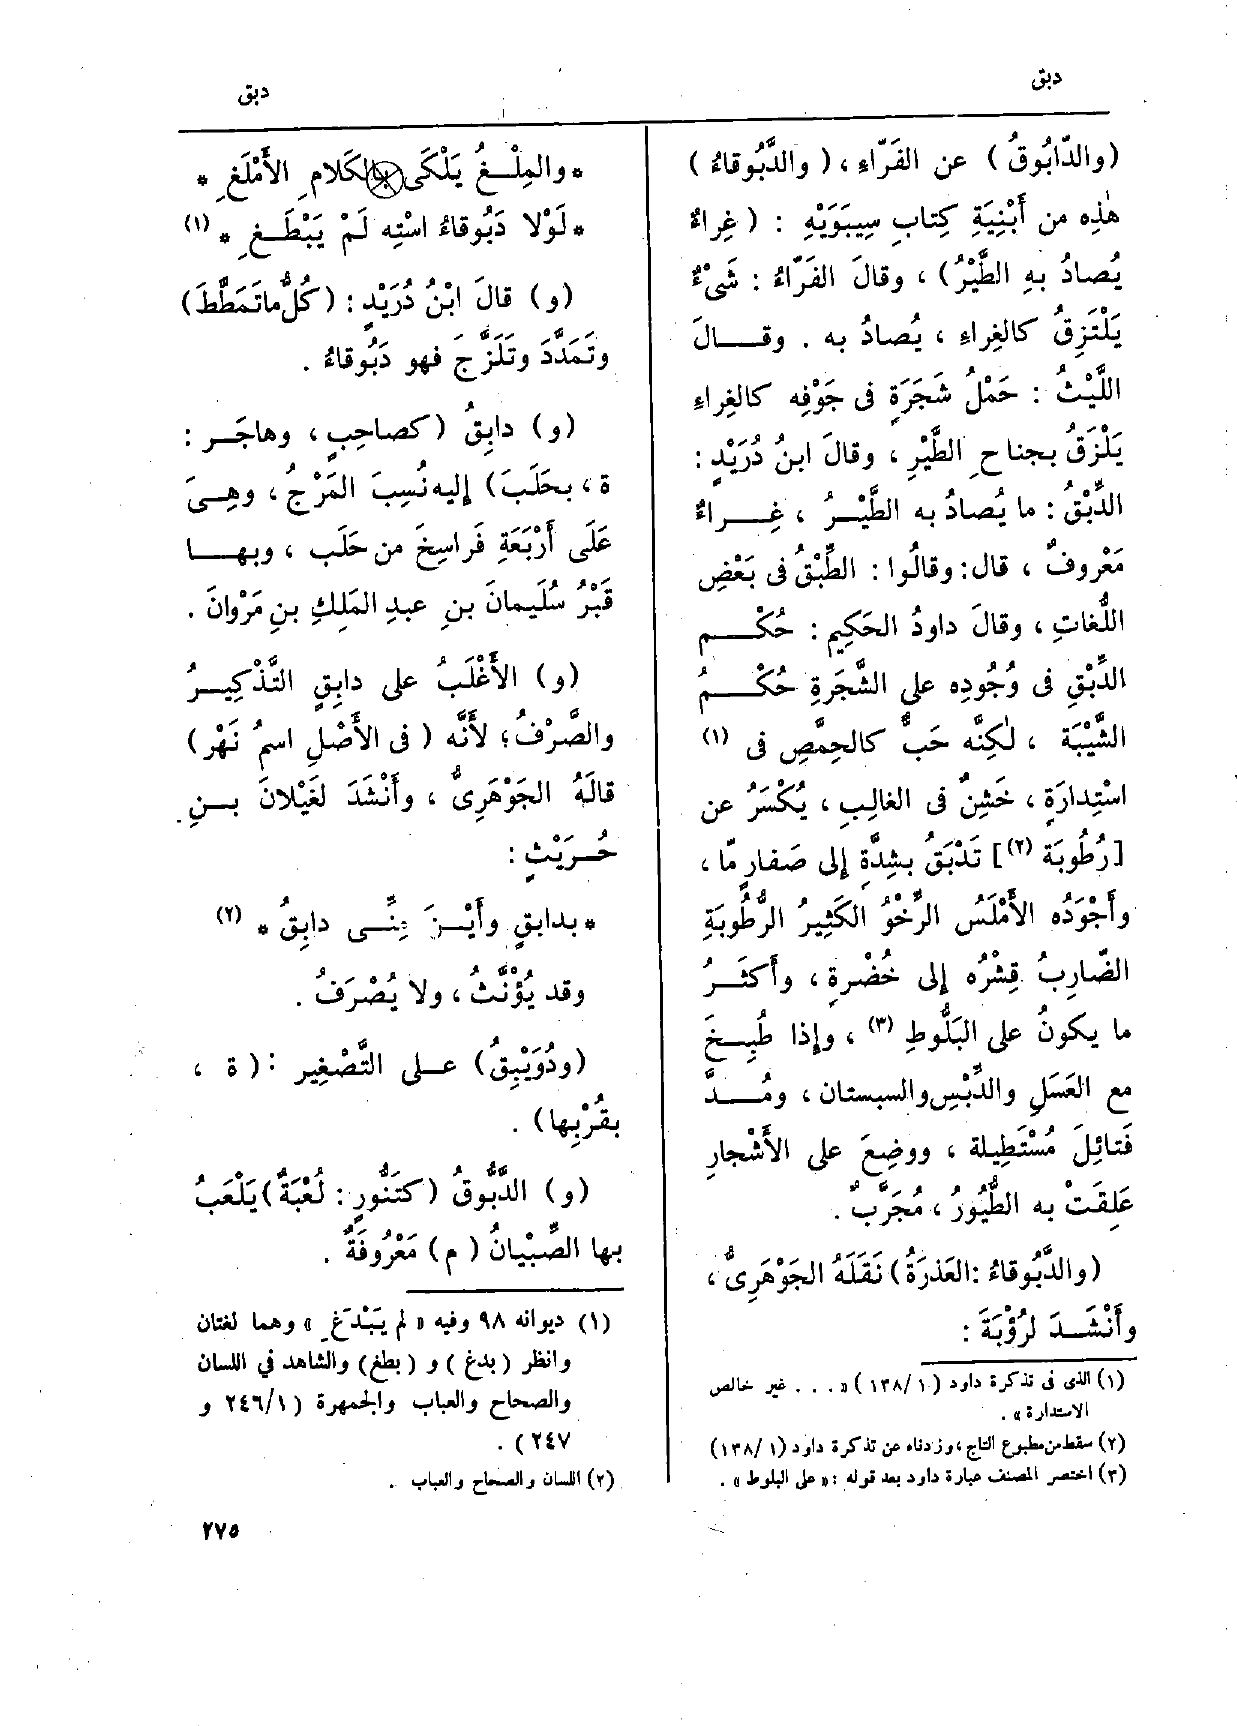 دبق
(والدَّابُوقُ) عن الفَرّاءِ ، (والدَّبُّوقاءُ)
هٰذِه من أَبْنِيَةِ كِتابِ سِيبَوَيْهِ : (غِراءٌ
يُصادُ بهِ الطَّيْرُ) ، وقالَ الفَرّاءُ : شَىْءٌ
يَلْتَزِقُ كالغِراءِ ، يُصادُ به . وقـــالَ
اللَّيْثُ : حَمْلُ شَجَرَةٍ فى جَوْفِه كالغِراءِ
يَلْزَقُ بجناحِ الطَّيْرِ ، وقالَ ابنُ دُرَيْدٍ :
الدِّبْقُ : ما يُصادُ به الطَّيْــرُ ، غِــراءٌ
مَعْروفٌ ، قال: وقالُوا : الطِّبْقُ فى بَعْضِ
اللُّغاتِ ، وقالَ داودُ الحَكِيم : حُكْــم
الدِّبْقِ فى وُجُودِه على الشَّجَرةِ حُكْــمُ
الشَّيْبَة ، لٰكِنَّه حَبٌّ كالحِمَّصِ فى (١)
اسْتِدارَةٍ ، خَشِنٌ فى الغالِبِ ، يُكْسَرُ عن
[رُطُوبَة (٢)] تَدْبَقُ بشِدَّةٍ إلى صَفارٍ مّا ،
وأَجْوَدُه الأَمْلَسُ الرَّخْوُ الكَثِيرُ الرُّطُوبَةِ
الضّارِبُ قِشْرُه إلى خُضْرةٍ ، وأَكثَــرُ
ما يكونُ على البَلُّوطِ (٣) ، وإذا طُبِــخَ
مع العَسَلِ والدِّبْسِ والسبستان ، ومُــدَّ
فَتائِلَ مُسْتَطِيلة ، ووضِعَ على الأَشْجارِ
عَلِقَتْ به الطُّيُورُ ، مُجَرَّبٌ .
(والدَّبُوقاءُ :العَذرَةُ) نَقَلَهُ الجَوْهَرِىُّ ،
وأَنْشَــدَ لرُؤْبَةَ :
(١) الذى فى تذكرة داود (١ /١٣٨) «. . . غير خالص
الاستدارة » .
(٢) سقط من مطبوع التاج ، وزدناه عن تذكرة داود (١ /١٣٨)
(٣) اختصر المصنف عبارة داود بعد قوله :« على البلوط » .
دبق
* والمِلْــغُ يَلْكَى بالكَلامِ الأَمْلَغِ *
* لَوْلا دَبُوقاءُ اسْتِه لَمْ يَبْطَــغِ * (١)
(و) قالَ ابْنُ دُرَيْدٍ : (كُلُّ ماتَمَطَّطَ)
وتَمَدَّدَ وتَلَزَّجَ فهو دَبُوقاءُ .
(و) دابِقُ (كصاحِبٍ ، وهاجَــر :
ة ، بحَلَبَ) إليه نُسِبَ المَرْجُ ، وهِــىَ
عَلَى أَرْبَعَةِ فَراسِخَ من حَلَب ، وبهــا
قَبْرُ سُلَيمانَ بنِ عبدِ المَلِكِ بنِ مَرْوانَ .
(و) الأَغْلَبُ على دابِقٍ التَّذْكِيــرُ
والصَّرْفُ؛ لأَنَّه (فى الأَصْلِ اسمُ نَهْر)
قالَهُ الجَوْهَرِىُّ ، وأَنْشَدَ لغَيْلانَ بــنِ
حُــرَيْثٍ :
* بدابقٍ وأَيْــنَ مِنِّــى دابِقُ * (٢)
وقد يُؤَنَّثُ ، ولا يُصْرَفُ .
(ودُوَيْبِقُ) علــى التَّصْغِير : (ة ،
بقُرْبِها) .
(و) الدَّبُّوقُ (كتَنُّورٍ : لُعْبَةٌ) يَلْعَبُ
بها الصِّبْيانُ (م) مَعْرُوفَةٌ .
(١) ديوانه ٩٨ وفيه « لم يَبْدَغِ » وهما لغتان
وانظر (بدغ) و (بطغ) والشاهد في اللسان
والصحاح والعباب والجمهرة (١/٢٤٦ و
٢٤٧) .
(٢) اللسان والصحاح والعباب .
٢٧٥